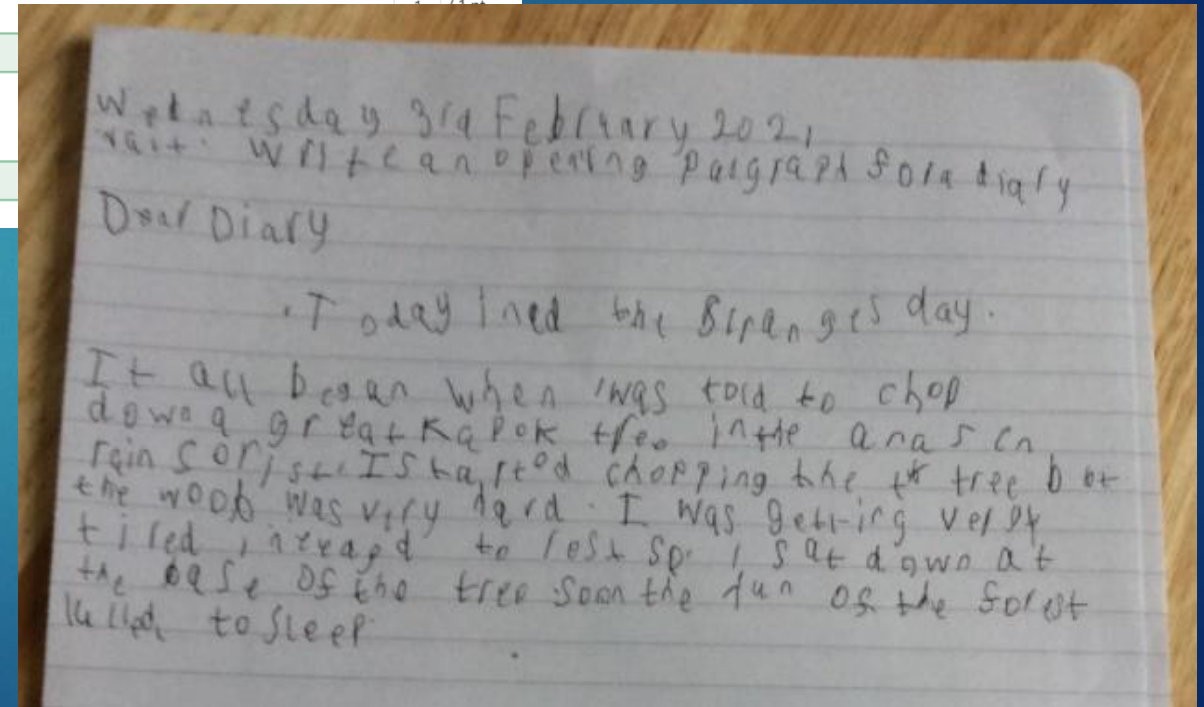 Wednesday 3rd February 2021
wait: Write an opening pargraph for a diary
Dear Diary
Today I had the stranges day.
It all began when I was told to chop
down a great Kapok tree in the amason
rain forist. I started chopping the tree bot
the wood was very hard. I was getting very
tired, I neeaed to rest so I sat down at
the base of the tree soon the hun of the forest
lulled to sleep